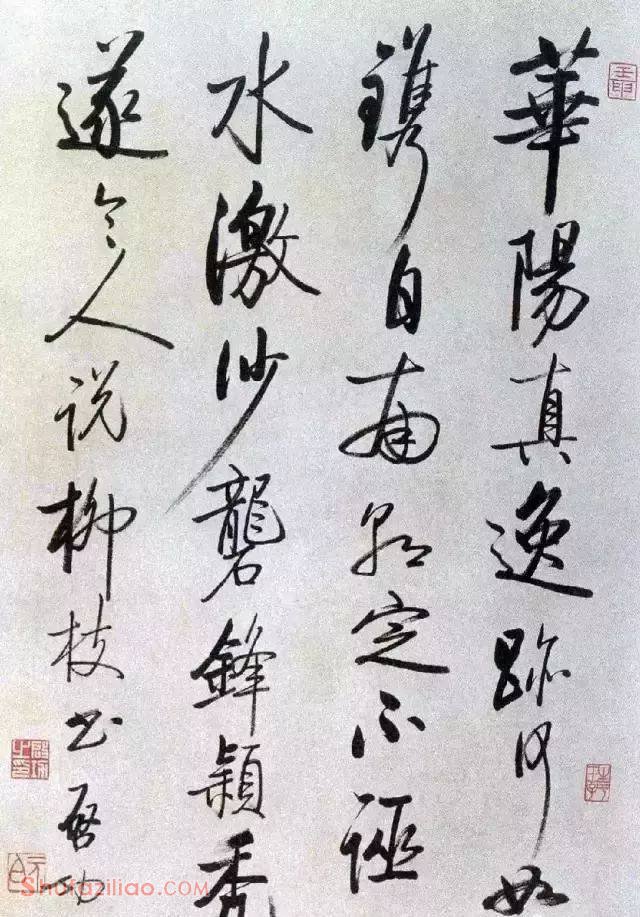 華陽真逸跡何如
鐫自南朝定不誣
水激沙礱鋒穎秃
遂令人说柳枝书 启功
Shufaziliao.com